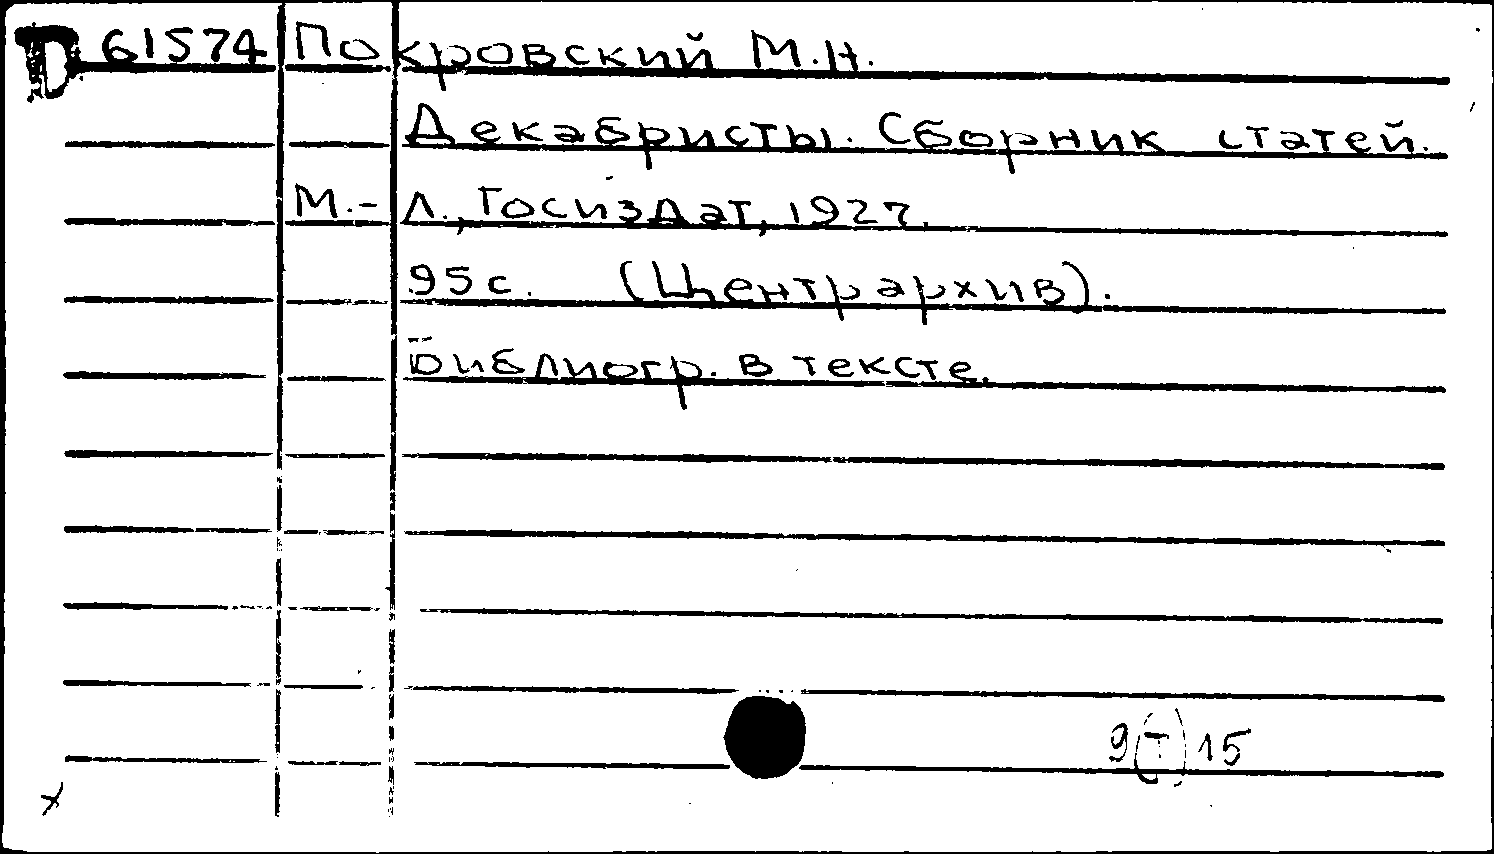 D 61574 Покровский М.Н.
Декабристы. Сборник статей.
М.-Л., Госиздат, 1927.
95 с. (Центрархив).
Библиогр. в тексте.
9(Т)15
x